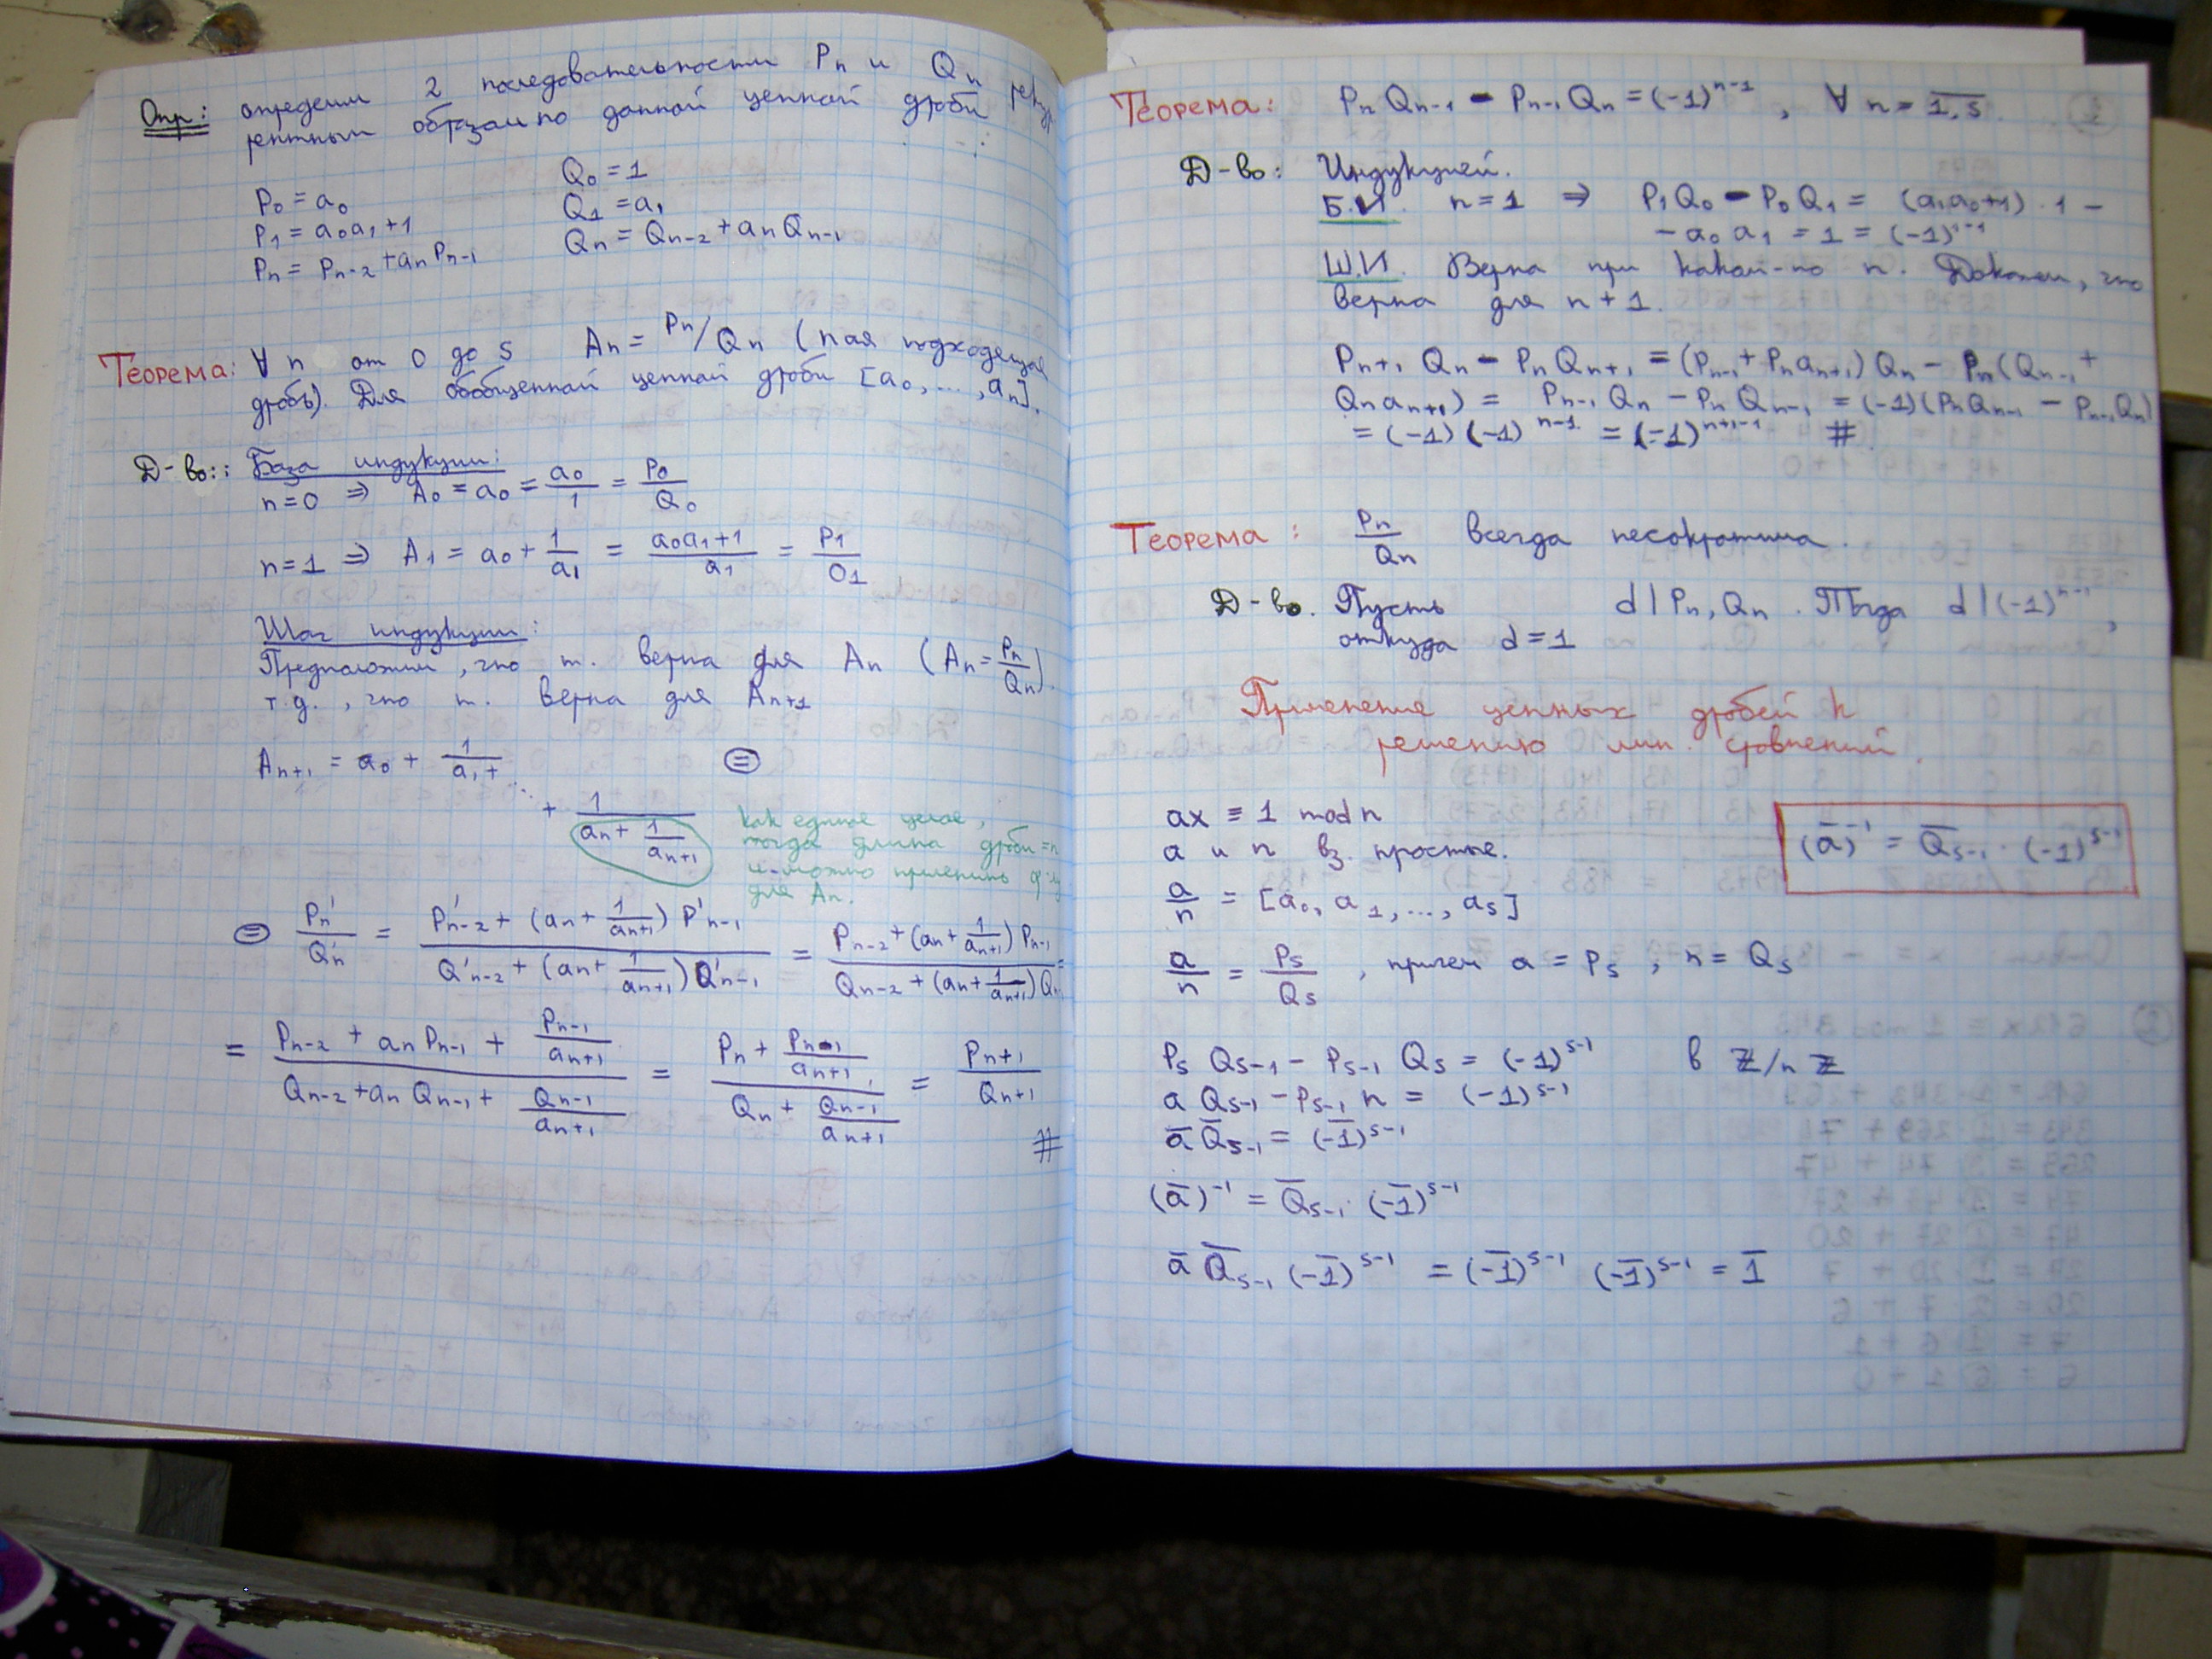 Опр: определим 2 последовательности Pn и Qn рекур
рентным образом по данной цепной дроби :
P₀ = a₀ Q₀ = 1
P₁ = a₀a₁+1 Q₁ = a₁
Pₙ = Pₙ₋₂ + aₙPₙ₋₁ Qₙ = Qₙ₋₂ + aₙQₙ₋₁
Теорема: ∀ n от 0 до s Aₙ = Pₙ/Qₙ (n ая подходящая
дробь). Для обобщенной цепной дроби [a₀, ..., aₙ].
Д-во:: База индукции:
n=0 ⇒ A₀ = a₀ = a₀/1 = P₀/Q₀
n=1 ⇒ A₁ = a₀ + 1/a₁ = (a₀a₁+1)/a₁ = P₁/Q₁
Шаг индукции:
Предположим, что т. верна для Aₙ (Aₙ = Pₙ/Qₙ).
т.д., что т. верна для Aₙ₊₁
Aₙ₊₁ = a₀ + 1/(a₁ + ⋱ + 1/(aₙ + 1/aₙ₊₁)) ⊜
как единое целое,
тогда длина дроби = n
и можно применить ф-лу
для Aₙ.
⊜ Pₙ'/Qₙ' = (P'ₙ₋₂ + (aₙ + 1/aₙ₊₁) P'ₙ₋₁)/(Q'ₙ₋₂ + (aₙ + 1/aₙ₊₁) Q'ₙ₋₁) = (Pₙ₋₂ + (aₙ + 1/aₙ₊₁) Pₙ₋₁)/(Qₙ₋₂ + (aₙ + 1/aₙ₊₁) Qₙ₋₁) =
= (Pₙ₋₂ + aₙPₙ₋₁ + Pₙ₋₁/aₙ₊₁)/(Qₙ₋₂ + aₙQₙ₋₁ + Qₙ₋₁/aₙ₊₁) = (Pₙ + Pₙ₋₁/aₙ₊₁)/(Qₙ + Qₙ₋₁/aₙ₊₁) = Pₙ₊₁/Qₙ₊₁
#
Теорема: PₙQₙ₋₁ - Pₙ₋₁Qₙ = (-1)ⁿ⁻¹, ∀ n = 1,s.
Д-во: Индукцией.
Б.И. n=1 ⇒ P₁Q₀ - P₀Q₁ = (a₁a₀+1) · 1 -
- a₀a₁ = 1 = (-1)¹⁻¹
Ш.И. Верна при каком-то n. Докажем, что
верна для n+1.
Pₙ₊₁Qₙ - PₙQₙ₊₁ = (Pₙ₋₁ + Pₙaₙ₊₁)Qₙ - Pₙ(Qₙ₋₁ +
Qₙaₙ₊₁) = Pₙ₋₁Qₙ - PₙQₙ₋₁ = (-1)(PₙQₙ₋₁ - Pₙ₋₁Qₙ)
= (-1)(-1)ⁿ⁻¹ = (-1)ⁿ⁺¹⁻¹ #
Теорема: Pₙ/Qₙ всегда несократима.
Д-во. Пусть d | Pₙ, Qₙ. Тогда d | (-1)ⁿ⁻¹,
откуда d=1
Применение цепных дробей к
решению лин. сравнений.
ax ≡ 1 mod n
a и n вз. простые.
(ā)⁻¹ = Q̄ₛ₋₁ · (-1)ˢ⁻¹
a/n = [a₀, a₁, ..., aₛ]
a/n = Pₛ/Qₛ, причем a = Pₛ, n = Qₛ
PₛQₛ₋₁ - Pₛ₋₁Qₛ = (-1)ˢ⁻¹ в ℤ/nℤ
aQₛ₋₁ - Pₛ₋₁n = (-1)ˢ⁻¹
āQ̄ₛ₋₁ = (-1̄)ˢ⁻¹
(ā)⁻¹ = Q̄ₛ₋₁ · (-1̄)ˢ⁻¹
āQ̄ₛ₋₁(-1̄)ˢ⁻¹ = (-1̄)ˢ⁻¹ (-1̄)ˢ⁻¹ = 1̄